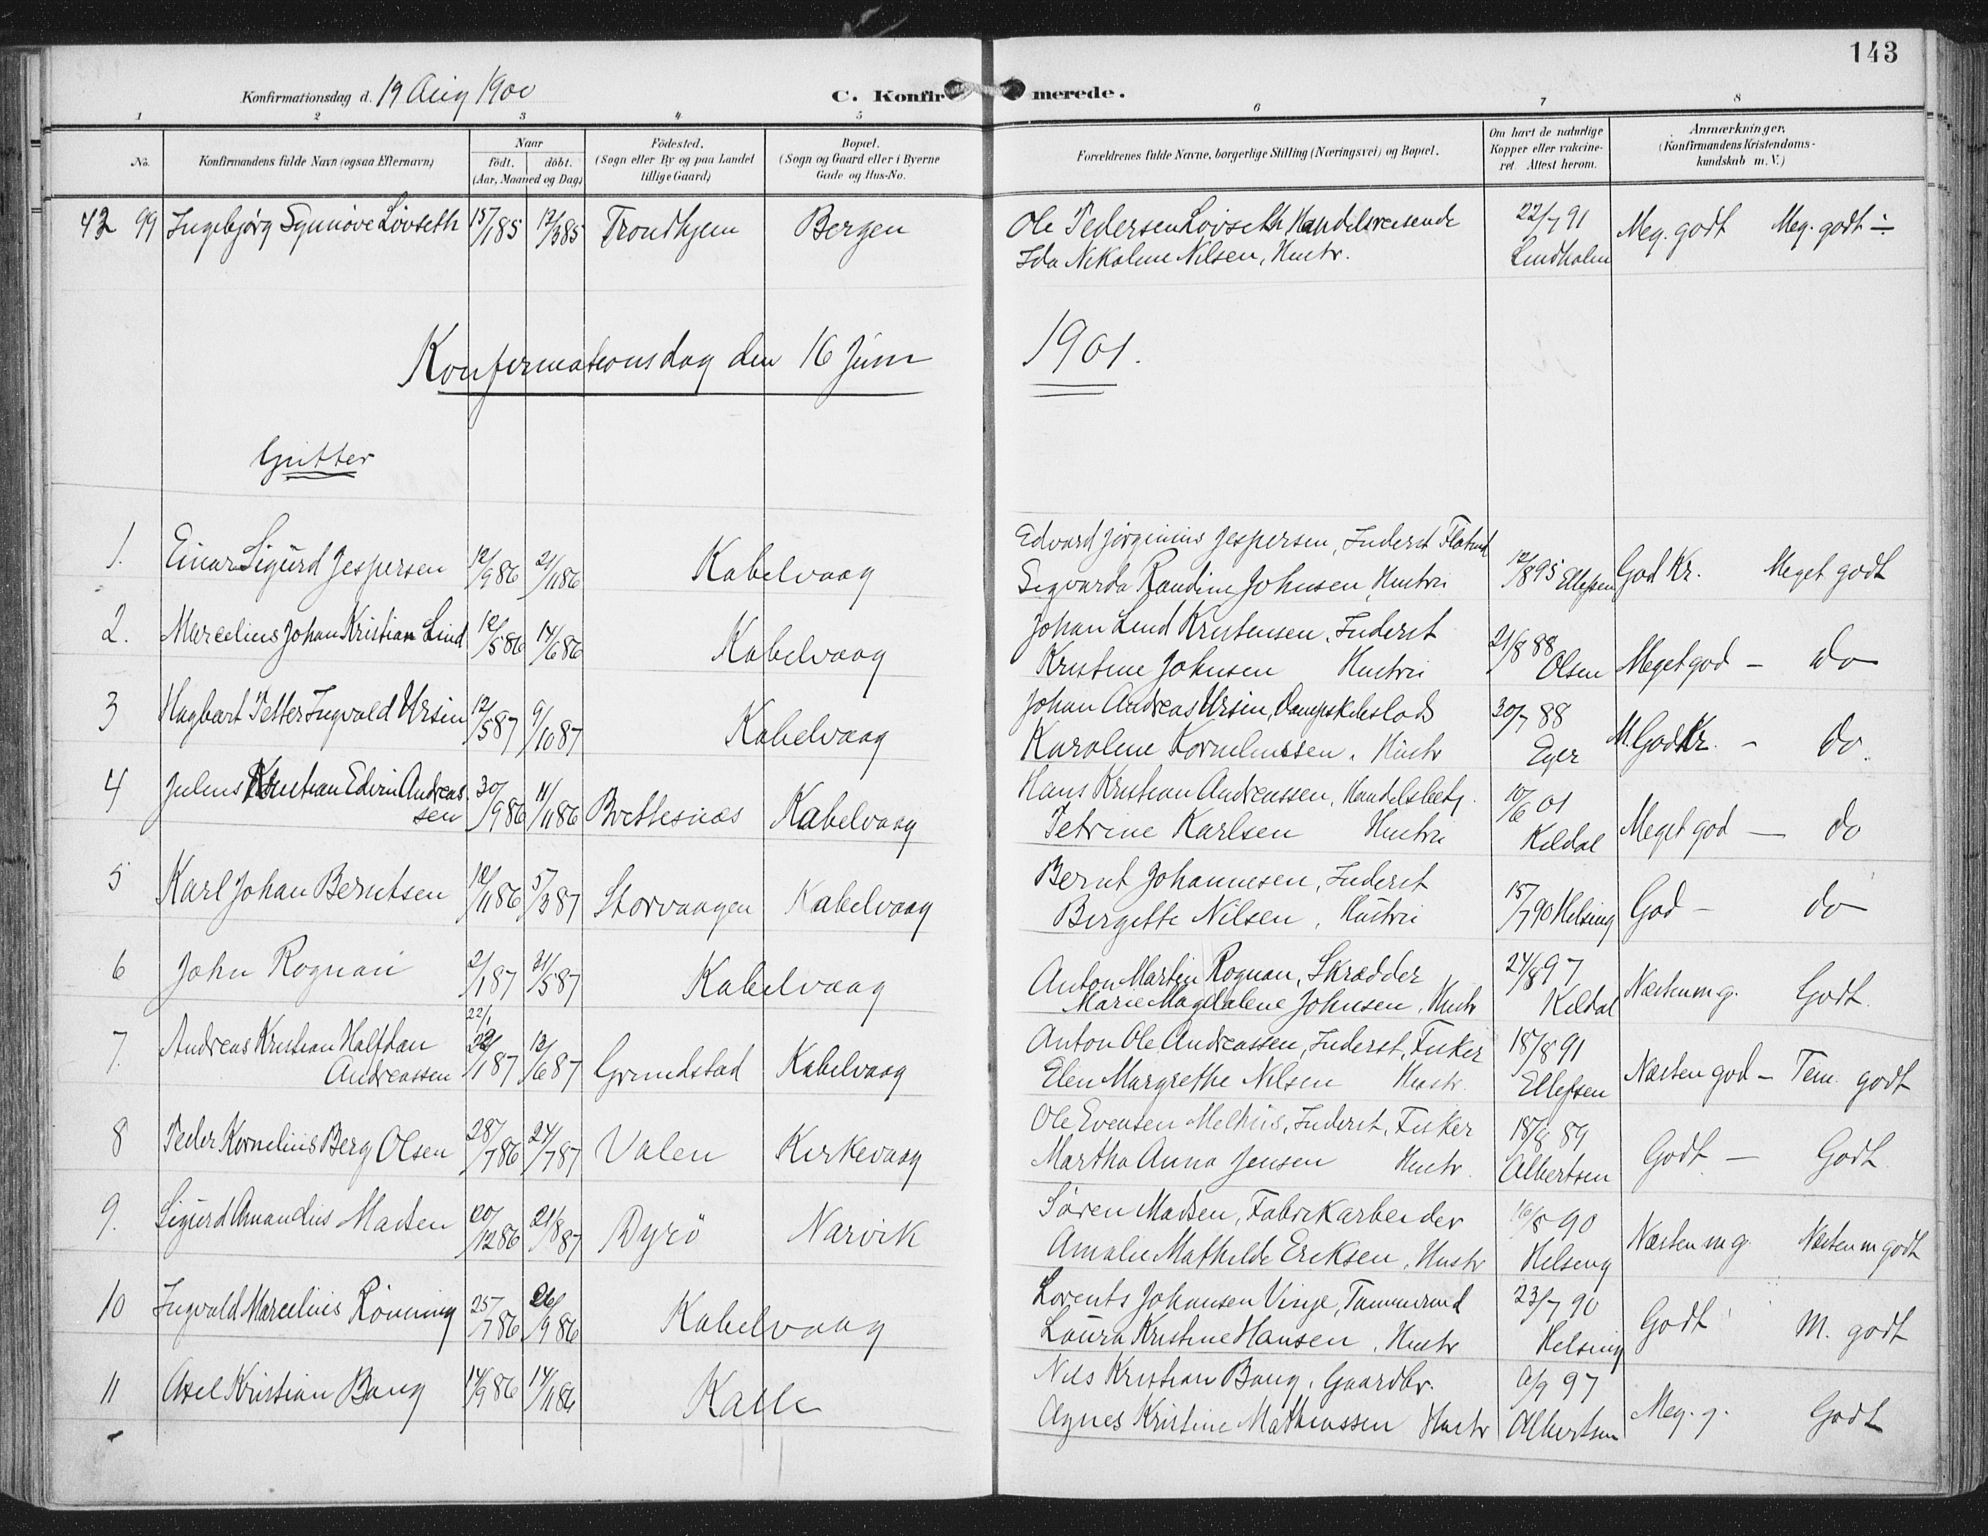 143
Konfirmationsdag d. 19 Aug 1900
C. Konfirmerede.
1 2 3 4 5 6 7 8
No. Konfirmandens fulde Navn (ogsaa Efternavn) Naar født. døbt. (Aar, Maaned og Dag) Fødested. (Sogn eller By og paa Landet tillige Gaard) Bopæl. (Sogn og Gaard eller i Byerne Gade og Hus-No. Forældrenes fulde Navne, borgerlige Stilling (Næringsvei) og Bopæl. Om havt de naturlige Kopper eller vakcineret. Attest herom. Anmærkninger. (Konfirmandens Kristendomskundskab m. V.)
42 99 Ingebjørg Synnøve Løvseth 15/1 85 12/3 85 Trondhjem Bergen Ole Pedersen Løvseth, Handelsreisende 22/7 91 Meg. godt Meg. godt ÷
Ida Nikoline Nilsen, Hustr. Lindholm
Konfirmationsdag den 16 Juni 1901.
Gutter
1. Einar Sigurd Jespersen 12/9 86 21/11 86 Kabelvaag Edvard Jørginius Jespersen, Inderst 12/8 95 Ellefsen God Kr. Meget godt
Sigvarda Randine Johnsen, Hustru
2. Marcelius Johan Kristian Lind 12/5 86 14/6 86 Kabelvaag Johan Lind Kristensen, Inderst 21/8 88 Meget god — do
Kristine Johnsen Hustru Olsen
3 Hagbart Petter Ingvald Ursin 12/5 87 9/10 87 Kabelvaag Johan Andreas Ursin, Dampskibslods 30/7 88 M. God Kr. — do.
Karoline Korneliussen, Hustr Eyer
4 Julius Kristian Edvin Andreassen 30/9 86 11/11 86 Brettesnæs Kabelvaag Hans Kristian Andreassen, Handelsbetj. 10/6 01 Meget god — do
Petrine Karlsen Hustru Kildal
5 Karl Johan Berntsen 12/11 86 5/3 87 Storvaagen Kabelvaag Bernt Johannesen, Inderst 15/7 90 Helsing God — do
Bergitte Nilsen, Hustru
6 John Rognan 2/1 87 31/5 87 Kabelvaag Anton Martin Rognan, Skrædder 24/8 97 Næsten m g. Godt.
Marie Magdalene Johnsen, Hustr Kildal
7. Andreas Kristian Halfdan Andreassen 22/1 22/1 87 13/6 87 Grundstad Kabelvaag Anton Ole Andreassen, Inderst, Fisker 18/8 91 Næsten god — Tem. godt
Elen Margrethe Nilsen Hustr. Ellefsen
8 Peder Kornelius Berg Olsen 28/7 86 24/7 87 Valen Kirkevaag Ole Evensen Melhus, Inderst, Fisker 18/8 89 Godt — Godt
Martha Anna Jensen Hustr. Albertsen
9. Sigurd Amandus Madsen 20/12 86 21/8 87 Dyrö Narvik Søren Madsen, Fabrikarbeider 16/8 90 Næsten m g. Næsten m godt
Amalie Mathilde Eriksen, Hustr Helsing
10 Ingvald Marcelius Rønning 25/7 86 26/9 86 Kabelvaag Lorents Johansen Vinje, Tømmermd 23/7 90 Godt M. godt
Laura Kristine Hansen, Hustr Helsing
11 Axel Kristian Bang 14/9 86 14/11 86 Kalle Nils Kristian Bang, Gaardbr. 97 Meg. g. Godt
Agnes Kristine Mathiassen Hustr Albertsen